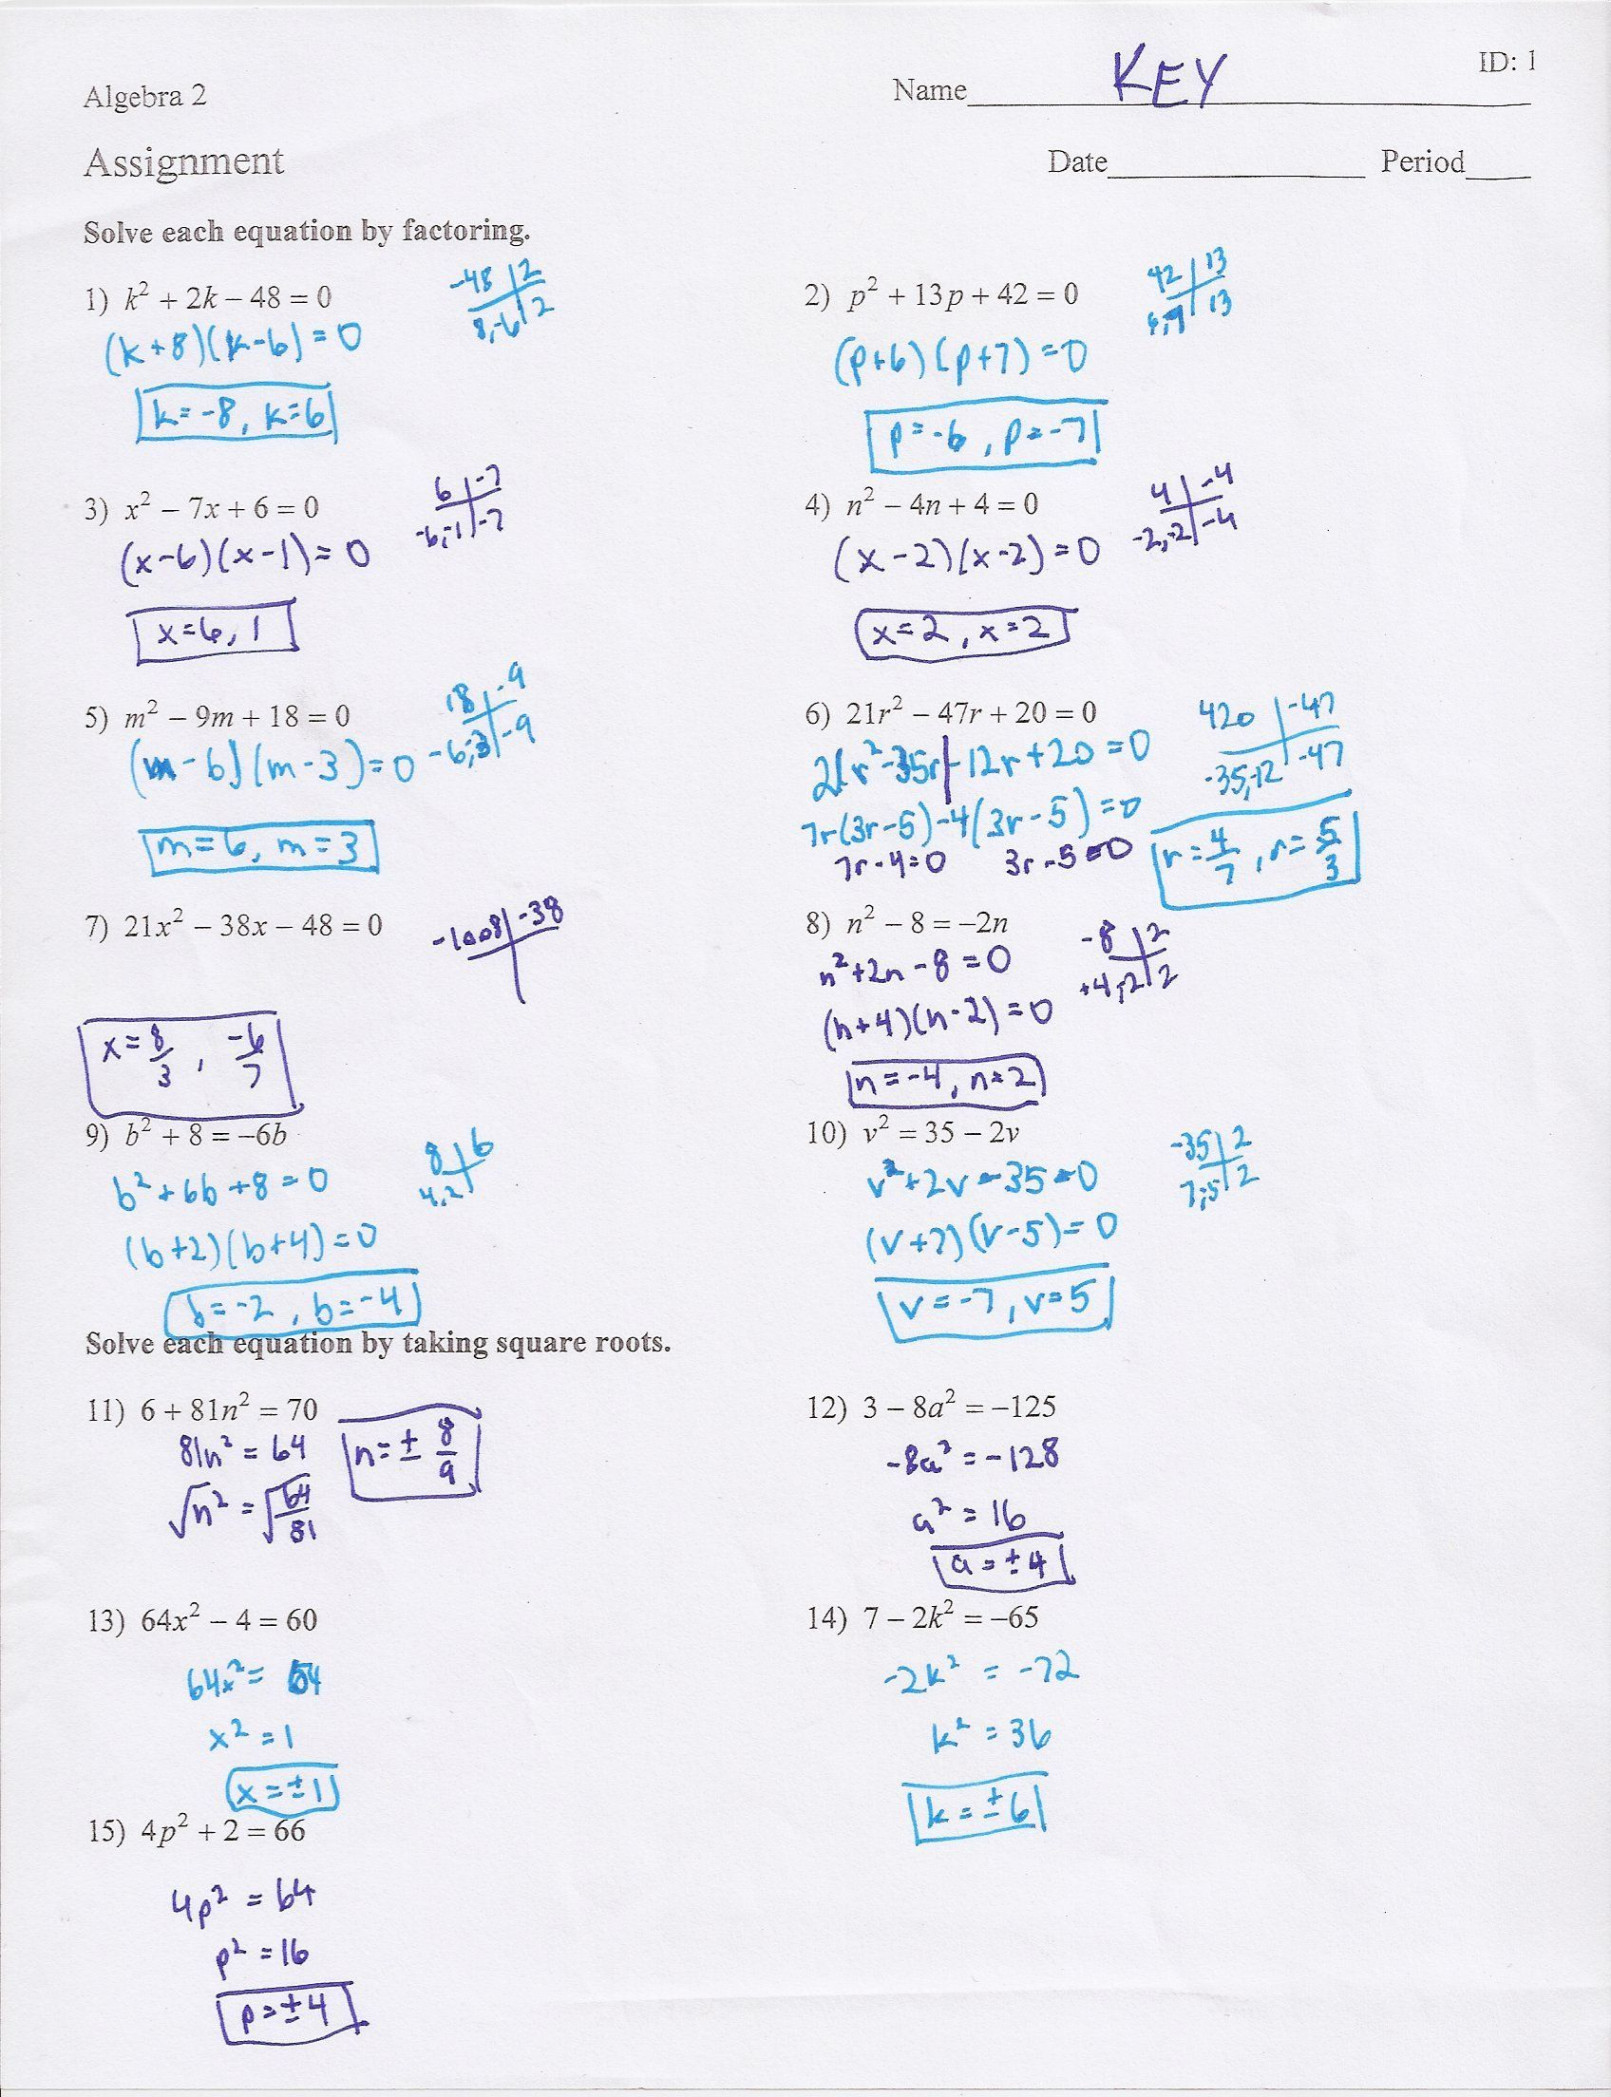 ID: 1
Algebra 2
Name KEY
Assignment
Date Period
Solve each equation by factoring.
1) k² + 2k − 48 = 0
-48 | 2
8, -6 | 2
(k+8)(k-6) = 0
k = -8, k = 6
2) p² + 13p + 42 = 0
42 | 13
6, 7 | 13
(p+6)(p+7) = 0
p = -6, p = -7
3) x² − 7x + 6 = 0
6 | -7
-6, -1 | -7
(x-6)(x-1) = 0
x = 6, 1
4) n² − 4n + 4 = 0
4 | -4
-2, -2 | -4
(x-2)(x-2) = 0
x = 2, x = 2
5) m² − 9m + 18 = 0
18 | -9
-6, -3 | -9
(m-6)(m-3) = 0
m = 6, m = 3
6) 21r² − 47r + 20 = 0
420 | -47
-35, -12 | -47
21r² - 35r | - 12r + 20 = 0
7r(3r-5) - 4(3r-5) = 0
7r - 4 = 0 3r - 5 = 0
r = 4/7, r = 5/3
7) 21x² − 38x − 48 = 0
-1008 | -38
x = 8/3, -6/7
8) n² − 8 = −2n
-8 | 2
+4, -2 | 2
n² + 2n - 8 = 0
(n+4)(n-2) = 0
n = -4, n = 2
9) b² + 8 = −6b
8 | 6
4, 2
b² + 6b + 8 = 0
(b+2)(b+4) = 0
b = -2, b = -4
10) v² = 35 − 2v
-35 | 2
7, -5 | 2
v² + 2v - 35 = 0
(v+7)(v-5) = 0
v = -7, v = 5
Solve each equation by taking square roots.
11) 6 + 81n² = 70
81n² = 64
√n² = √64/81
n = ± 8/9
12) 3 − 8a² = −125
-8a² = -128
a² = 16
a = ±4
13) 64x² − 4 = 60
64x² = 64
x² = 1
x = ±1
14) 7 − 2k² = −65
-2k² = -72
k² = 36
k = ±6
15) 4p² + 2 = 66
4p² = 64
p² = 16
p = ±4